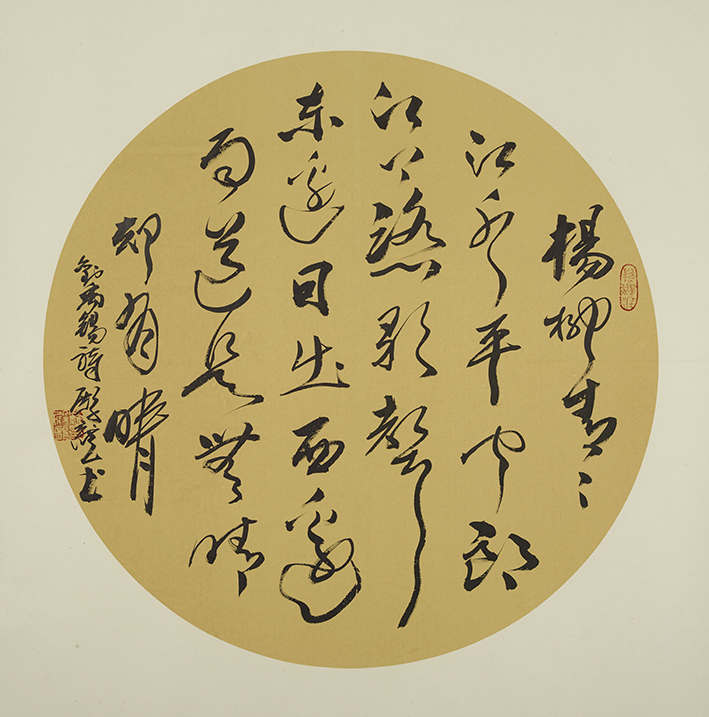 楊柳青〻
江水平聞郎
江上踏歌聲
東邊日出西邊
雨道是無晴
却有晴
劉禹錫詩